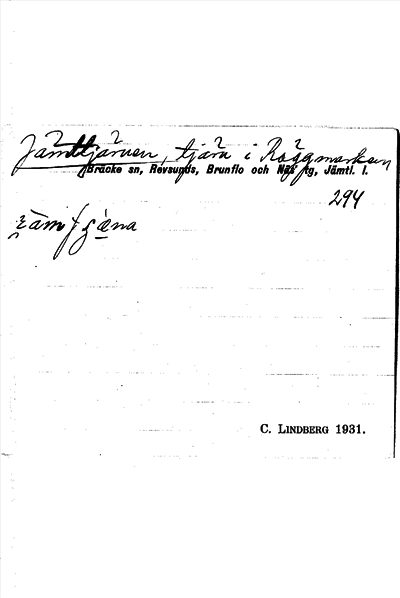 Jämttjärnen, tjärn i Räggmarken
Bräcke sn, Revsunds, Brunflo och Näs tg, Jämtl. l.
294
C. LINDBERG 1931.